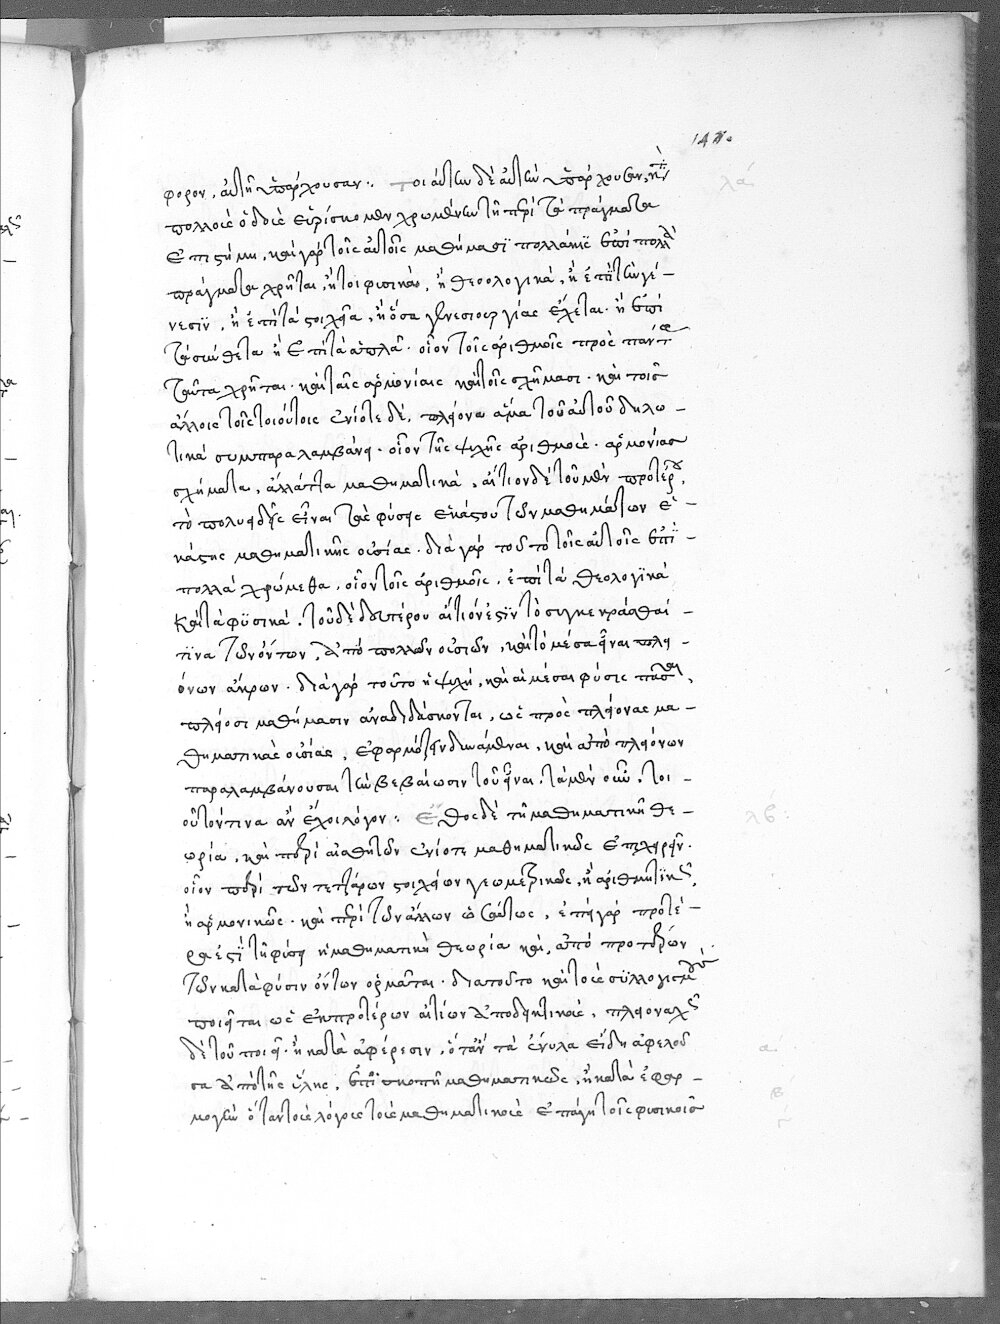 147.
φορον, αὐτῇ ὑπάρχουσαν :. τοιαύτην δὲ αὐτὴν ὑπάρχουσαν, ἐπὶ λα
πολλοῖς ὁδοῖς εὑρίσκομεν χρωμένην τῇ περὶ τὰ πράγματα
ἐπιστήμῃ, καὶ γὰρ τοῖς αὐτοῖς μαθήμασϊ πολλάκις ἐπὶ πολλὰ
πράγματα χρῆται, ἤτοι φυσικὰ, ἢ θεολογικὰ, ἢ ἐπὶ τὴν γέ -
νεσϊν, ἢ ἐπὶ τὰ στοιχεῖα, ἢ ὅσα γενεσιουργίας ἔχεται. ἢ ἐπὶ
τὰ σύνθετα ἢ ἐπὶ τὰ ἁπλᾶ. οἷον τοῖς ἀριθμοῖς πρὸς πάντα
ταῦτα χρῆται. καὶ ταῖς ἁρμονίαις καὶ τοῖς σχήμασι. καὶ τοῖς
ἄλλοις τοῖς τοιούτοις ἐνίοτε δὲ, πλείονα ἅμα τοῦ αὐτοῦ δηλω -
τικὰ συμπαραλαμβάνει. οἷον τῆς ψυχῆς ἀριθμοὺς. ἁρμονίας
σχήματα, ἄλλάττα μαθηματικὰ, αἴτιον δὲ τοῦ μὲν προτέρου,
τὸ πολυειδεῖς εἶναι τὰς φύσεις ἑκάστου τῶν μαθημάτων ἑ -
κάστης μαθηματικῆς οὐσίας. διὰ γὰρ τοῦτο τοῖς αὐτοῖς ἐπὶ -
πολλὰ χρώμεθα, οἷον τοῖς ἀριθμοῖς, ἐπὶ τὰ θεολογϊκὰ
καὶ τὰ φϋσικά. τοῦ δὲ δευτέρου αἴτιόν ἐστϊν τὸ συγκεκράσθαί -
τϊνα τῶν ὄντων, ἀπὸ πολλῶν οὐσιῶν, καὶ τὸ μέσα εἶναι πλει -
όνων ἄκρων. διὰ γὰρ τοῦτο ἡ ψυχὴ, καὶ αἱ μέσαι φύσεις πᾶσαι,
πλείοσι μαθήμασιν ἀναδιδάσκονται, ὡς πρὸς πλείονας μα -
θηματικὰς οὐσίας, ἐφαρμόζειν δυνάμεναι, καὶ ἀπὸ πλειόνων
παραλαμβάνουσαι τὴν βεβαίωσιν τοῦ εἶναι. ταμὲν οὖν, τοι -
οῦτόν τινα ἂν ἔχοι λόγον :. Ἔθος δὲ τῇ μαθηματικῇ θε - λβ
ωρίᾳ, καὶ περὶ αἰσθητῶν ἐνίοτε μαθηματικῶς ἐπιχειρεῖν.
οἷον περὶ τῶν τετάρων στοιχείων γεωμετρικῶς, ἢ ἀριθμητϊκῶς,
ἢ ἁρμονικῶς. καὶ περὶ τῶν ἄλλων ὡσαύτως, ἐπεὶ γὰρ προτέ -
ρα ἐστὶ τῇ φύσει ἡ μαθηματικὴ θεωρία καὶ, ἀπὸ προτέρων
τῶν κατὰ φύσιν ὄντων ὁρμᾶται. διὰ τοῦτο καὶ τοὺς συλλογισμοὺς
ποιεῖται ὡς ἐκ προτέρων αἰτίων ἀποδεικτικοὺς, πλεοναχῶς
δὲ τοῦ ποιεῖ. ἢ κατὰ ἀφέρεσιν, ὅταν τὰ ἔνυλα εἴδη ἀφελοῦ α
σα ἀπὸ τῆς ὕλης, ἐπισκοπῆ μαθηματικῶς, ἢ κατὰ ἐφαρ - β
μογὴν ὅταν τοὺς λόγους τοὺς μαθηματικοὺς ἐπάγῃ τοῖς φυσικοῖς